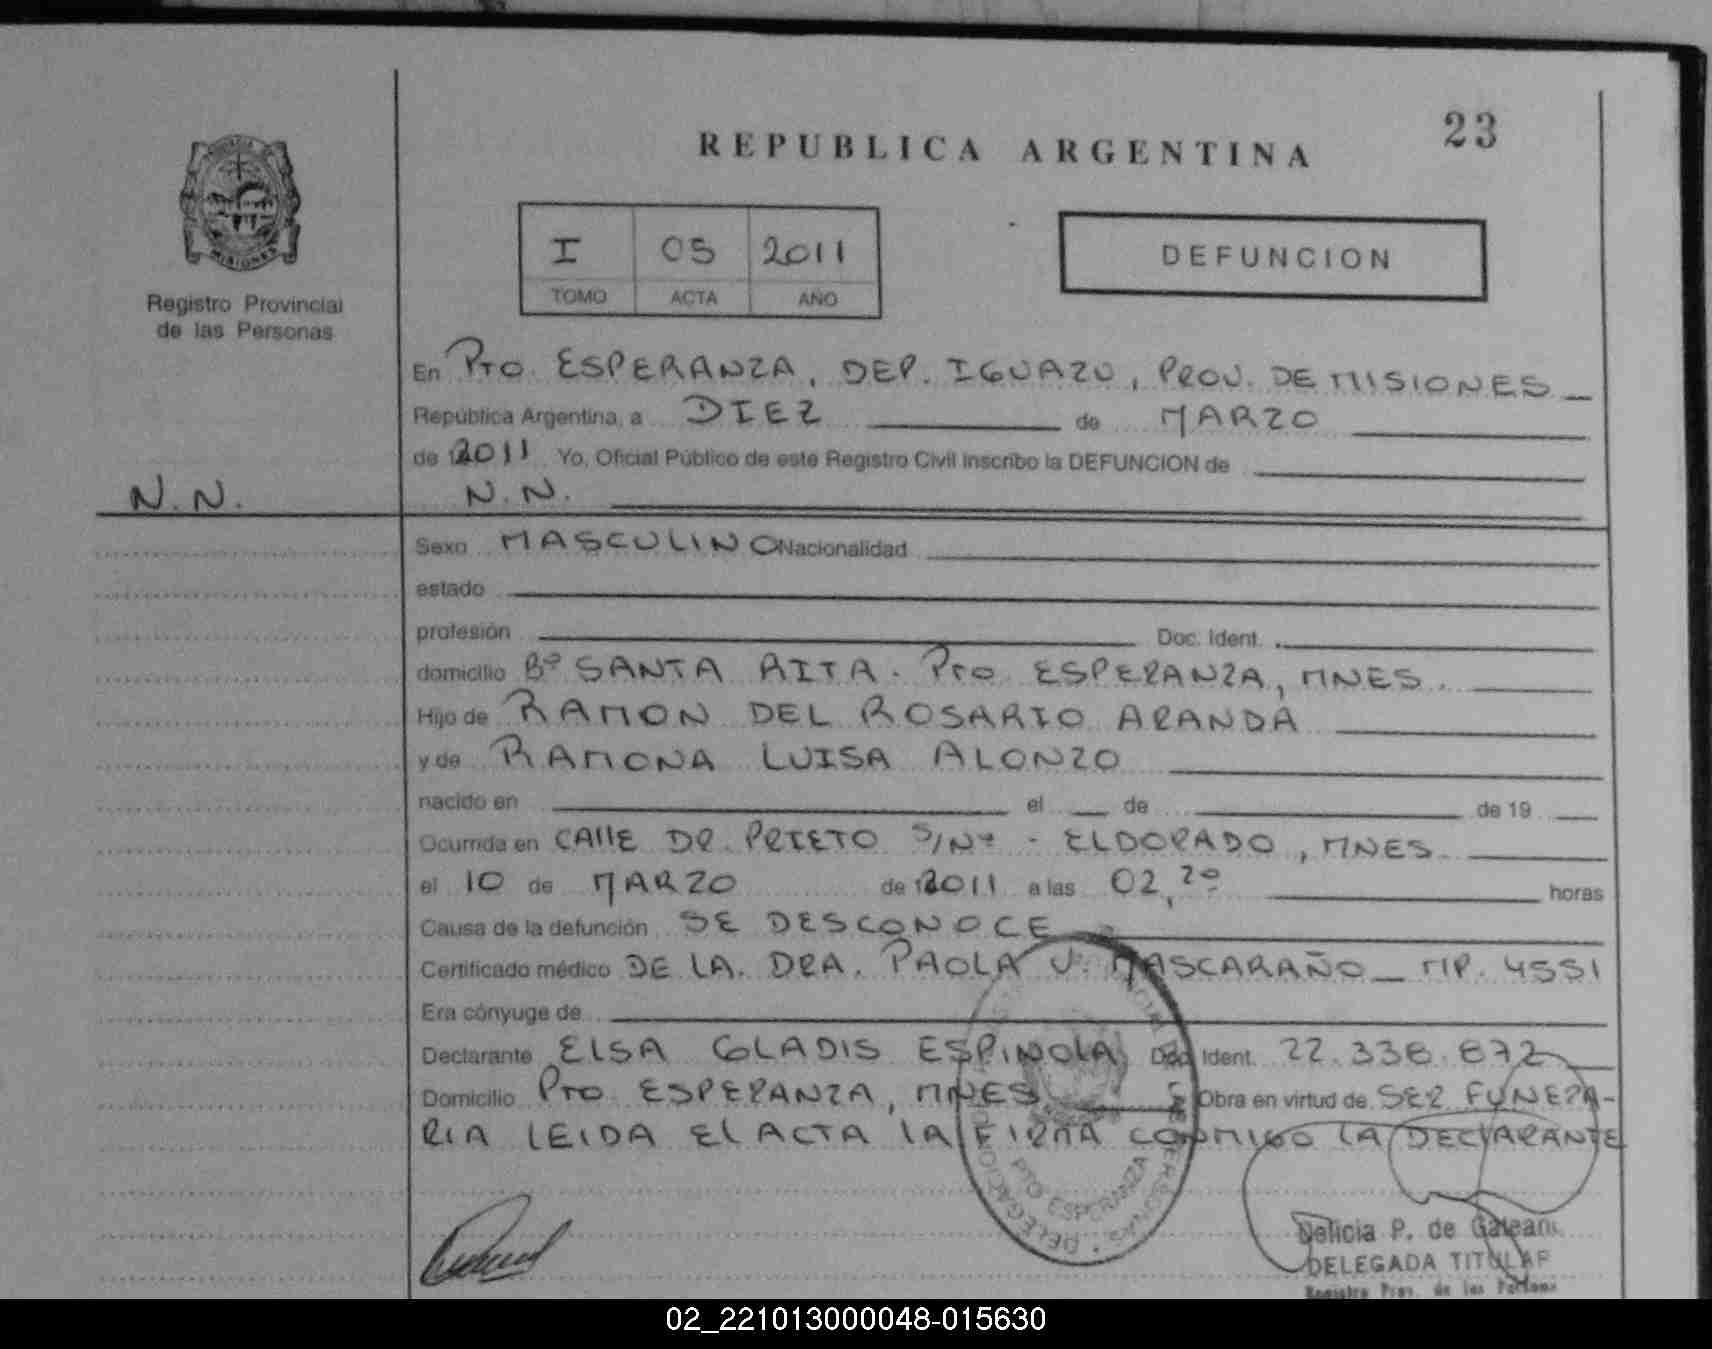 23
REPUBLICA ARGENTINA
MISIONES
Registro Provincial
de las Personas
I 05 2011
TOMO ACTA AÑO
DEFUNCION
En Pto. ESPERANZA, DEP. IGUAZU, PROV. DE MISIONES
República Argentina, a DIEZ de MARZO
de 2011 Yo, Oficial Público de este Registro Civil inscribo la DEFUNCION de
N.N. N.N.
Sexo MASCULINO Nacionalidad
estado
profesión Doc. Ident.
domicilio Bº SANTA RITA. Pto ESPERANZA, MNES.
Hijo de RAMON DEL ROSARIO ARANDA
y de RAMONA LUISA ALONZO
nacido en el de de 19
Ocurrida en CAllE DR. PRIETO S/Nº - ELDORADO, MNES
el 10 de MARZO de 2011 a las 02,20 horas
Causa de la defunción SE DESCONOCE
Certificado médico DE LA. DRA. PAOLA V. MASCARAÑO MP. 4551
Era cónyuge de
Declarante ELSA GLADIS ESPINOLA Doc. Ident. 22.338.872
Domicilio Pto ESPERANZA, MNES Obra en virtud de SER FUNERA-
RIA LEIDA El ACTA LA FIRMA CONMIGO LA DEClARANTE
DELEGACION PTO ESPERANZA
Delicia P. de Galeano
DELEGADA TITULAR
Registro Prov. de las Personas
02_221013000048-015630